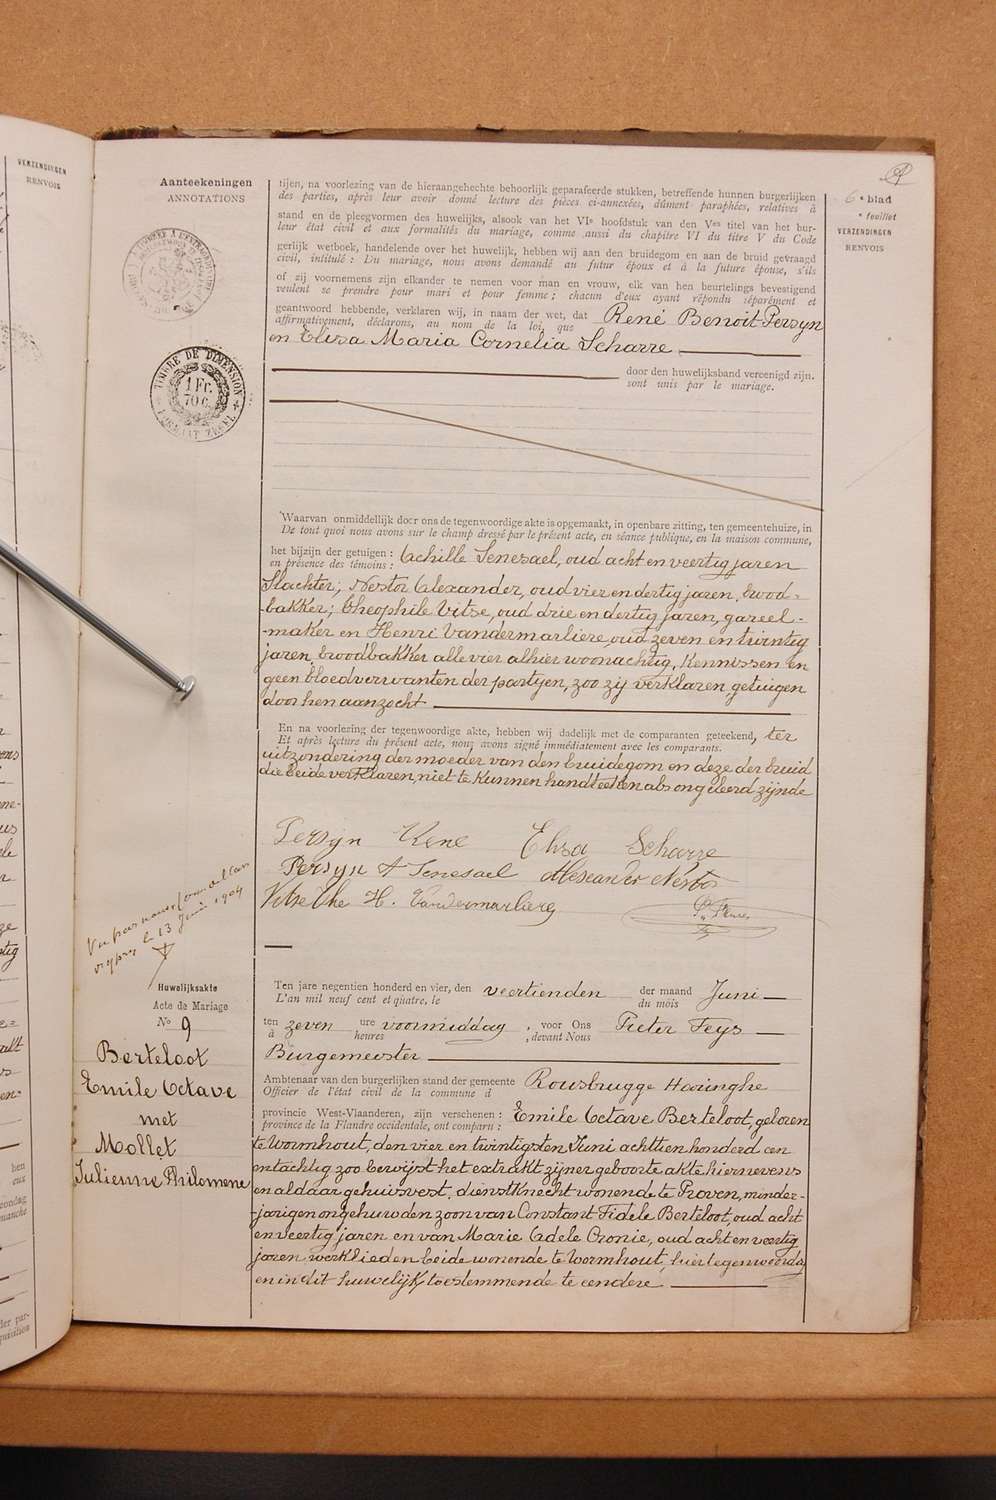 Aanteekeningen
ANNOTATIONS
6e blad
e feuillet
VERZENDINGEN
RENVOIS
VERZENDINGEN
RENVOIS
tijen, na voorlezing van de hieraangehechte behoorlijk geparafeerde stukken, betreffende hunnen burgerlijken
des parties, après leur avoir donné lecture des pièces ci-annexées, dûment paraphées, relatives à
stand en de pleegvormen des huwelijks, alsook van het VIe hoofdstuk van den Ves titel van het bur-
leur état civil et aux formalités du mariage, comme aussi du chapitre VI du titre V du Code
gerlijk wetboek, handelende over het huwelijk, hebben wij aan den bruidegom en aan de bruid gevraagd
civil, intitulé : Du mariage, nous avons demandé au futur époux et à la future épouse, s'ils
of zij voornemens zijn elkander te nemen voor man en vrouw, elk van hen beurtelings bevestigend
veulent se prendre pour mari et pour femme ; chacun d'eux ayant répondu séparément et
geantwoord hebbende, verklaren wij, in naam der wet, dat René Benoit Persyn
affirmativement, déclarons, au nom de la loi, que
en Eliza Maria Cornelia Scharre
door den huwelijksband vereenigd zijn.
sont unis par le mariage.
TIMBRE DE DIMENSION
1 Fr.
70 c.
FORMAAT ZEGEL
Waarvan onmiddelijk door ons de tegenwoordige akte is opgemaakt, in openbare zitting, ten gemeentehuize, in
De tout quoi nous avons sur le champ dressé par le présent acte, en séance publique, en la maison commune,
het bijzijn der getuigen : Achille Senesael, oud acht en veertig jaren
en présence des témoins :
Slachter; Nestor Alexander, oud vier en dertig jaren, brood=
-bakker; Theophile Vitse, oud drie en dertig jaren, gareel-
-maker en Henri Vandermarliere, oud zeven en twintig
jaren, broodbakker alle vier alhier woonachtig, kennissen en
geen bloedverwanten der partyen, zoo zij verklaren, getuigen
door hen aanzocht
En na voorlezing der tegenwoordige akte, hebben wij dadelijk met de comparanten geteekend, ter
Et après lecture du présent acte, nous avons signé immédiatement avec les comparants.
uitzondering der moeder van den bruidegom en deze der bruid
die beide verklaren, niet te kunnen handteeken als ongeleerd zijnde
Persyn Rene Elisa Scharre
Persyn A Senesael Alexander Nestor
Vitse The H. Vandermarliere P. Feys
Vu par nous
le 13 Juin 1904
Huwelijksakte
Acte de Mariage
No 9
Berteloot
Emile Octave
met
Mollet
Julienne Philomene
Ten jare negentien honderd en vier, den veertienden der maand Juni
L'an mil neuf cent et quatre, le du mois
ten zeven ure voormiddag, voor Ons Pieter Feys
à heures , devant Nous
Burgemeester
Ambtenaar van den burgerlijken stand der gemeente Rousbrugge Haringhe
Officier de l'état civil de la commune d
provincie West-Vlaanderen, zijn verschenen : Emile Octave Berteloot, geboren
province de la Flandre occidentale, ont comparu :
te Wormhout, den vier en twintigsten Juni achttien honderd een
en tachtig zoo bewijst het extrakt zijner geboorte akte hiernevens
en aldaar gehuisvest, dienstknecht wonende te Proven, minder-
-jarigen ongehuwden zoon van Constant Fidele Berteloot, oud acht
en veertig jaren en van Marie Adele Oronie, oud acht en veertig
jaren werklieden beide wonende te Wormhout, hier tegenwoordig
en in dit huwelijk toestemmende te eendere